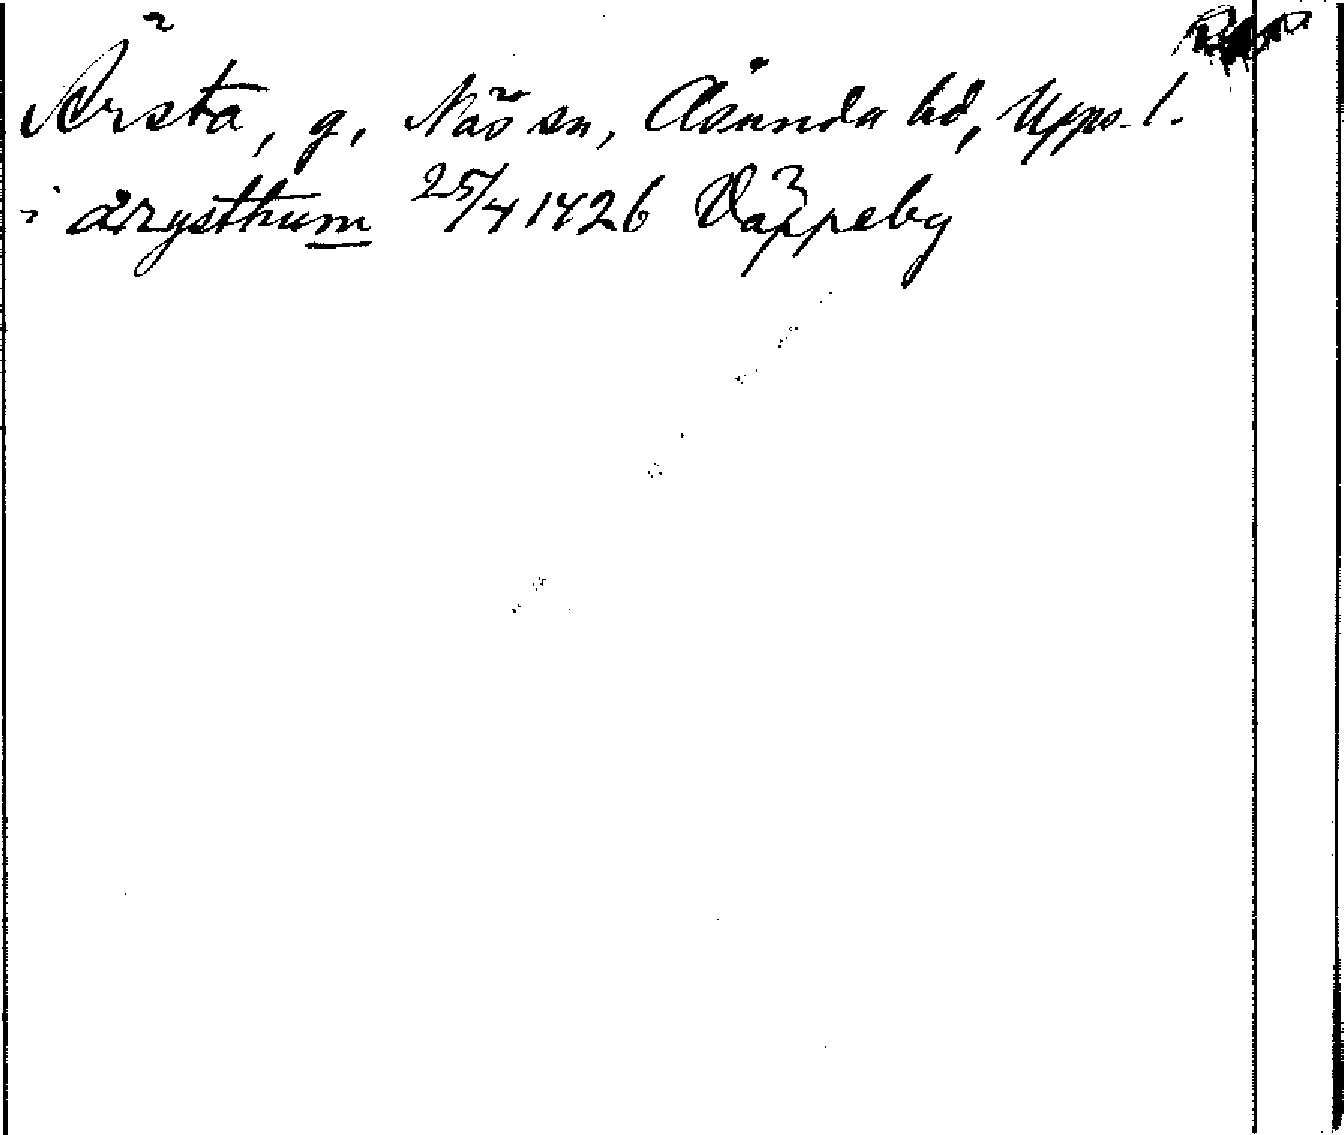 Ärsta, g, Näs sn, Åsunda hd, Upps. l.
i ärysthum 25/4 1426 Väppeby